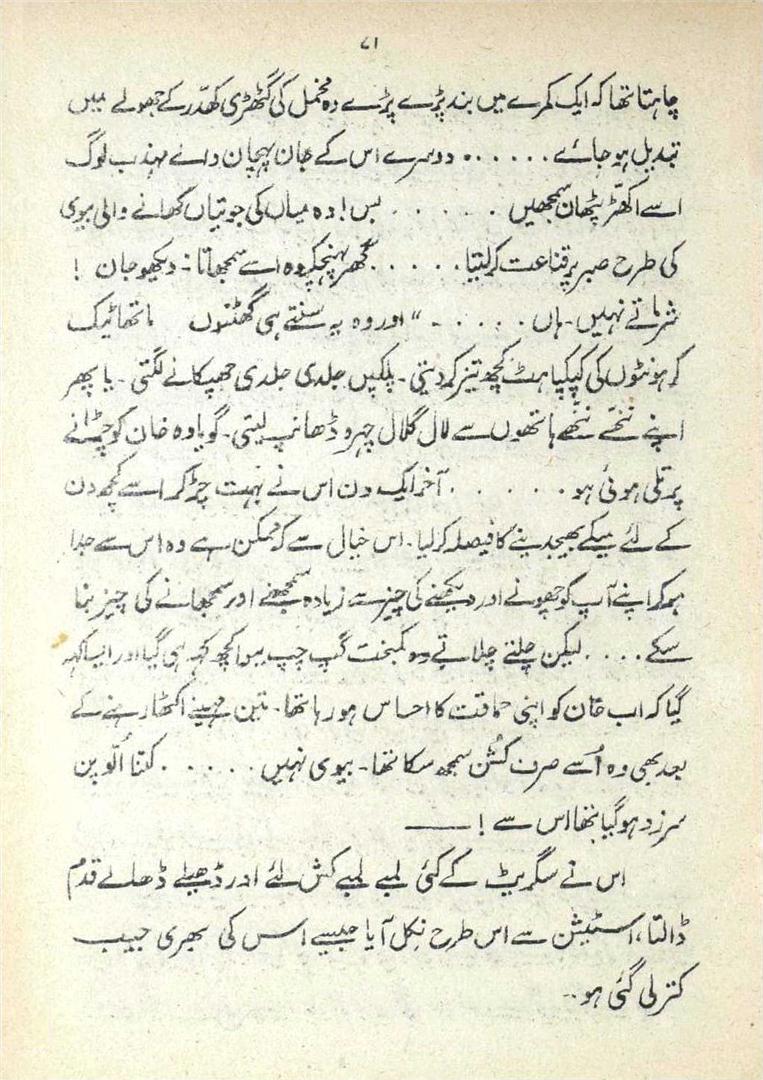 ۷۱
چاہتا تھا کہ ایک کمرے میں بند پڑے پڑے وہ مخمل کی گٹھڑی کھدّر کے جھولے میں
تبدیل ہو جائے . . . . . . دوسرے اس کے جان پہچان والے مہذب لوگ
اسے اکھّڑ پٹھان سمجھیں . . . . . . بس! وہ میاں کی جوتیاں کھانے والی بیوی
کی طرح صبر پر قناعت کر لیتا . . . . . گھر پہنچکر وہ اسے سمجھاتا :- دیکھو جان !
شرماتے نہیں۔ ہاں . . . . . ۔" اور وہ یہ سنتے ہی گھٹنوں ماتھا ٹیک
کر ہونٹوں کی کپکپاہٹ کچھ تیز کر دیتی۔ پلکیں جلدی جلدی جھپکانے لگتی۔ یا پھر
اپنے ننھّے ننھّے ہاتھوں سے لال گلال چہرہ ڈھانپ لیتی۔ گویا وہ خان کو چڑانے
پر تلی ہوئی ہو . . . . . . آخر ایک دن اس نے بہت چڑ کر اسے کچھ دن
کے لئے میکے بھیجدینے کا فیصلہ کر لیا۔ اس خیال سے کہ ممکن ہے وہ اس سے جدا
ہو کر اپنے آپ کو چھونے اور دیکھنے کی چیز سے زیادہ سمجھنے اور سمجھانے کی چیز بنا
سکے . . . . لیکن چلتے چلاتے وہ کمبخت گپ چپ میں کچھ کہہ ہی گیا اور ایسا کہہ
گیا کہ اب خان کو اپنی حماقت کا احساس ہو رہا تھا۔ تین مہینے اکھٹا رہنے کے
بعد بھی وہ اُسے صرف کشن سمجھ سکا تھا۔ بیوی نہیں . . . . . کتنا اُلّو پن
سرزد ہو گیا تھا اس سے ! ——
اس نے سگریٹ کے کئی لمبے لمبے کش لئے اور ڈھیلے ڈھالے قدم
ڈالتا، اسٹیشن سے اس طرح نکل آیا جیسے اس کی بھری جیب
کتر لی گئی ہو۔۔